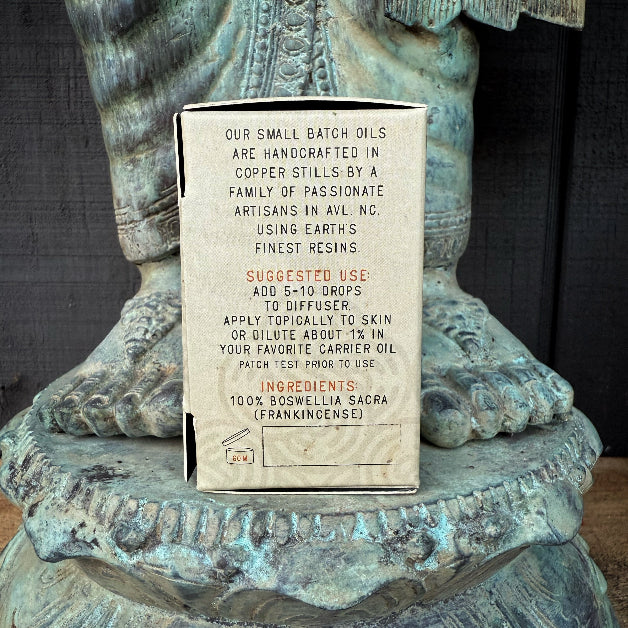 OUR SMALL BATCH OILS
ARE HANDCRAFTED IN
COPPER STILLS BY A
FAMILY OF PASSIONATE
ARTISANS IN AVL. NC.
USING EARTH'S
FINEST RESINS.
SUGGESTED USE:
ADD 5-10 DROPS
TO DIFFUSER.
APPLY TOPICALLY TO SKIN
OR DILUTE ABOUT 1% IN
YOUR FAVORITE CARRIER OIL
PATCH TEST PRIOR TO USE
INGREDIENTS:
100% BOSWELLIA SACRA
(FRANKINCENSE)
60M